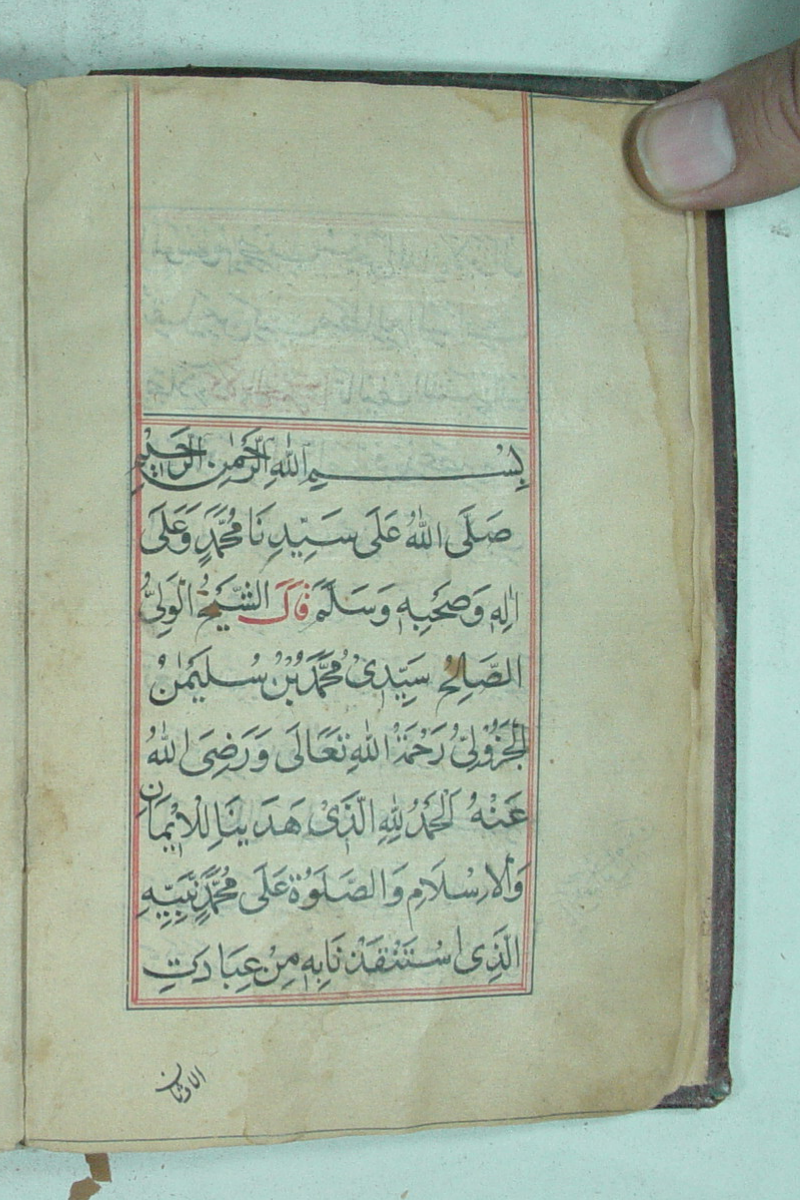 بِسْمِ اللهِ الرَّحْمٰنِ الرَّحِيْمِ
صَلَّى اللهُ عَلَى سَيِّدِنَا مُحَمَّدٍ وَعَلَى
اٰلِهِ وَصَحْبِهِ وَسَلَّمَ قَالَ الشَّيْخُ الْوَلِىُّ
الصَّالِحُ سَيِّدِىْ مُحَمَّدُ بْنُ سُلَيْمٰنَ
الْجَزُوْلِىُّ رَحْمَةُ اللهِ تَعَالَى وَرَضِىَ اللهُ
عَنْهُ اَلْحَمْدُ لِلّٰهِ الَّذِىْ هَدَينَا لِلْاِيْمَانِ
وَالْاِسْلَامِ وَالصَّلَوٰةُ عَلَى مُحَمَّدٍ نَبِيِّهِ
الَّذِى اسْتَنْقَذَنَا بِهِ مِنْ عِبَادَتِ
الاوثان